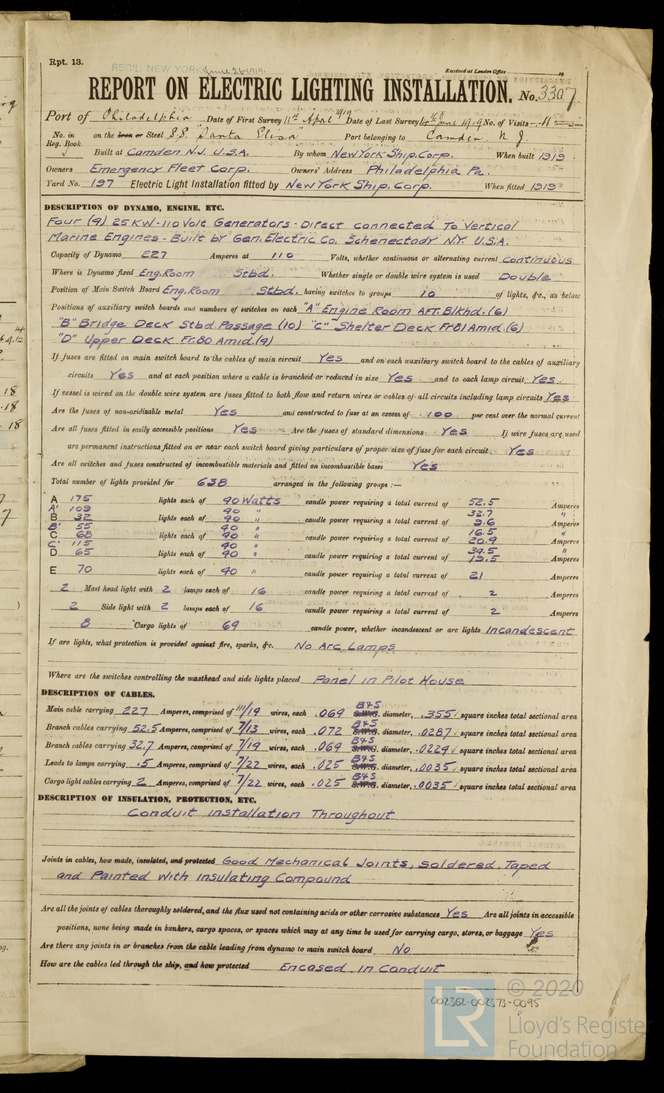 Rpt. 13.
REC'D NEW YORK June 26 1919
Received at London Office 19
REPORT ON ELECTRIC LIGHTING INSTALLATION. No. 3307
Port of Philadelphia Date of First Survey 11th April 1919 Date of Last Survey June 1919 No. of Visits 11
No. in Reg. Book on the Iron or Steel S.S. "Santa Elisa" Port belonging to Camden N.J.
Built at Camden N.J. U.S.A. By whom New York Ship. Corp. When built 1919
Owners Emergency Fleet Corp. Owners' Address Philadelphia Pa.
Yard No. 197 Electric Light Installation fitted by New York Ship. Corp. When fitted 1919
DESCRIPTION OF DYNAMO, ENGINE, ETC.
Four (4) 25 KW-110 Volt Generators - Direct connected To Vertical
Marine Engines - Built by Gen. Electric Co. Schenectady N.Y. U.S.A.
Capacity of Dynamo 227 Amperes at 110 Volts, whether continuous or alternating current Continuous
Where is Dynamo fixed Eng. Room Stbd. Whether single or double wire system is used Double
Position of Main Switch Board Eng. Room Stbd. having switches to groups 10 of lights, &c., as below
Positions of auxiliary switch boards and numbers of switches on each "A" Engine Room Aft. Blkhd. (6)
"B" Bridge Deck Stbd. Passage (10) "C" Shelter Deck Fr 81 Amid. (6)
"D" Upper Deck Fr. 80 Amid. (4)
If fuses are fitted on main switch board to the cables of main circuit Yes and on each auxiliary switch board to the cables of auxiliary
circuits Yes and at each position where a cable is branched or reduced in size Yes and to each lamp circuit Yes
If vessel is wired on the double wire system are fuses fitted to both flow and return wires or cables of all circuits including lamp circuits Yes
Are the fuses of non-oxidizable metal Yes and constructed to fuse at an excess of 100 per cent over the normal current
Are all fuses fitted in easily accessible positions Yes Are the fuses of standard dimensions Yes If wire fuses are used
are permanent instructions fitted on or near each switch board giving particulars of proper size of fuse for each circuit Yes
Are all switches and fuses constructed of incombustible materials and fitted on incombustible bases Yes
Total number of lights provided for 638 arranged in the following groups :—
A 175 lights each of 40 Watts candle power requiring a total current of 52.5 Amperes
A' 109 40 " 32.7 "
B 32 lights each of 40 " candle power requiring a total current of 9.6 Amperes
B' 55 40 " 16.5 "
C 68 lights each of 40 " candle power requiring a total current of 20.4 Amperes
C' 115 40 " 34.5 "
D 65 lights each of 40 " candle power requiring a total current of 19.5 Amperes
E 70 lights each of 40 " candle power requiring a total current of 21 Amperes
2 Mast head light with 2 lamps each of 16 candle power requiring a total current of 2 Amperes
2 Side light with 2 lamps each of 16 candle power requiring a total current of 2 Amperes
8 Cargo lights of 64 candle power, whether incandescent or arc lights Incandescent
If arc lights, what protection is provided against fire, sparks, &c. No Arc Lamps
Where are the switches controlling the masthead and side lights placed Panel in Pilot House
DESCRIPTION OF CABLES.
Main cable carrying 227 Amperes, comprised of 111/19 wires, each .064 B&S S.W.G. diameter, .355 square inches total sectional area
Branch cables carrying 52.5 Amperes, comprised of 7/13 wires, each .072 B&S S.W.G. diameter, .0287 square inches total sectional area
Branch cables carrying 32.7 Amperes, comprised of 7/14 wires, each .064 B&S S.W.G. diameter, .0224 square inches total sectional area
Leads to lamps carrying .5 Amperes, comprised of 7/22 wires, each .025 B&S S.W.G. diameter, .0035 square inches total sectional area
Cargo light cables carrying 2 Amperes, comprised of 7/22 wires, each .025 B&S S.W.G. diameter, .0035 square inches total sectional area
DESCRIPTION OF INSULATION, PROTECTION, ETC.
Conduit Installation Throughout
Joints in cables, how made, insulated, and protected Good Mechanical Joints, Soldered, Taped
and Painted With Insulating Compound
Are all the joints of cables thoroughly soldered, and the flux used not containing acids or other corrosive substances Yes Are all joints in accessible
positions, none being made in bunkers, cargo spaces, or spaces which may at any time be used for carrying cargo, stores, or baggage Yes
Are there any joints in or branches from the cable leading from dynamo to main switch board No
How are the cables led through the ship, and how protected Encased in Conduit
© 2020
002362-002373-0095
LR
Lloyd's Register
Foundation